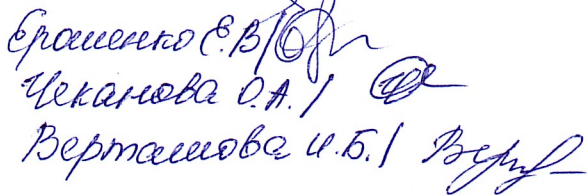 Ерошенко Е.В/
Чеканова О.А. /
Верташова И.Б. /